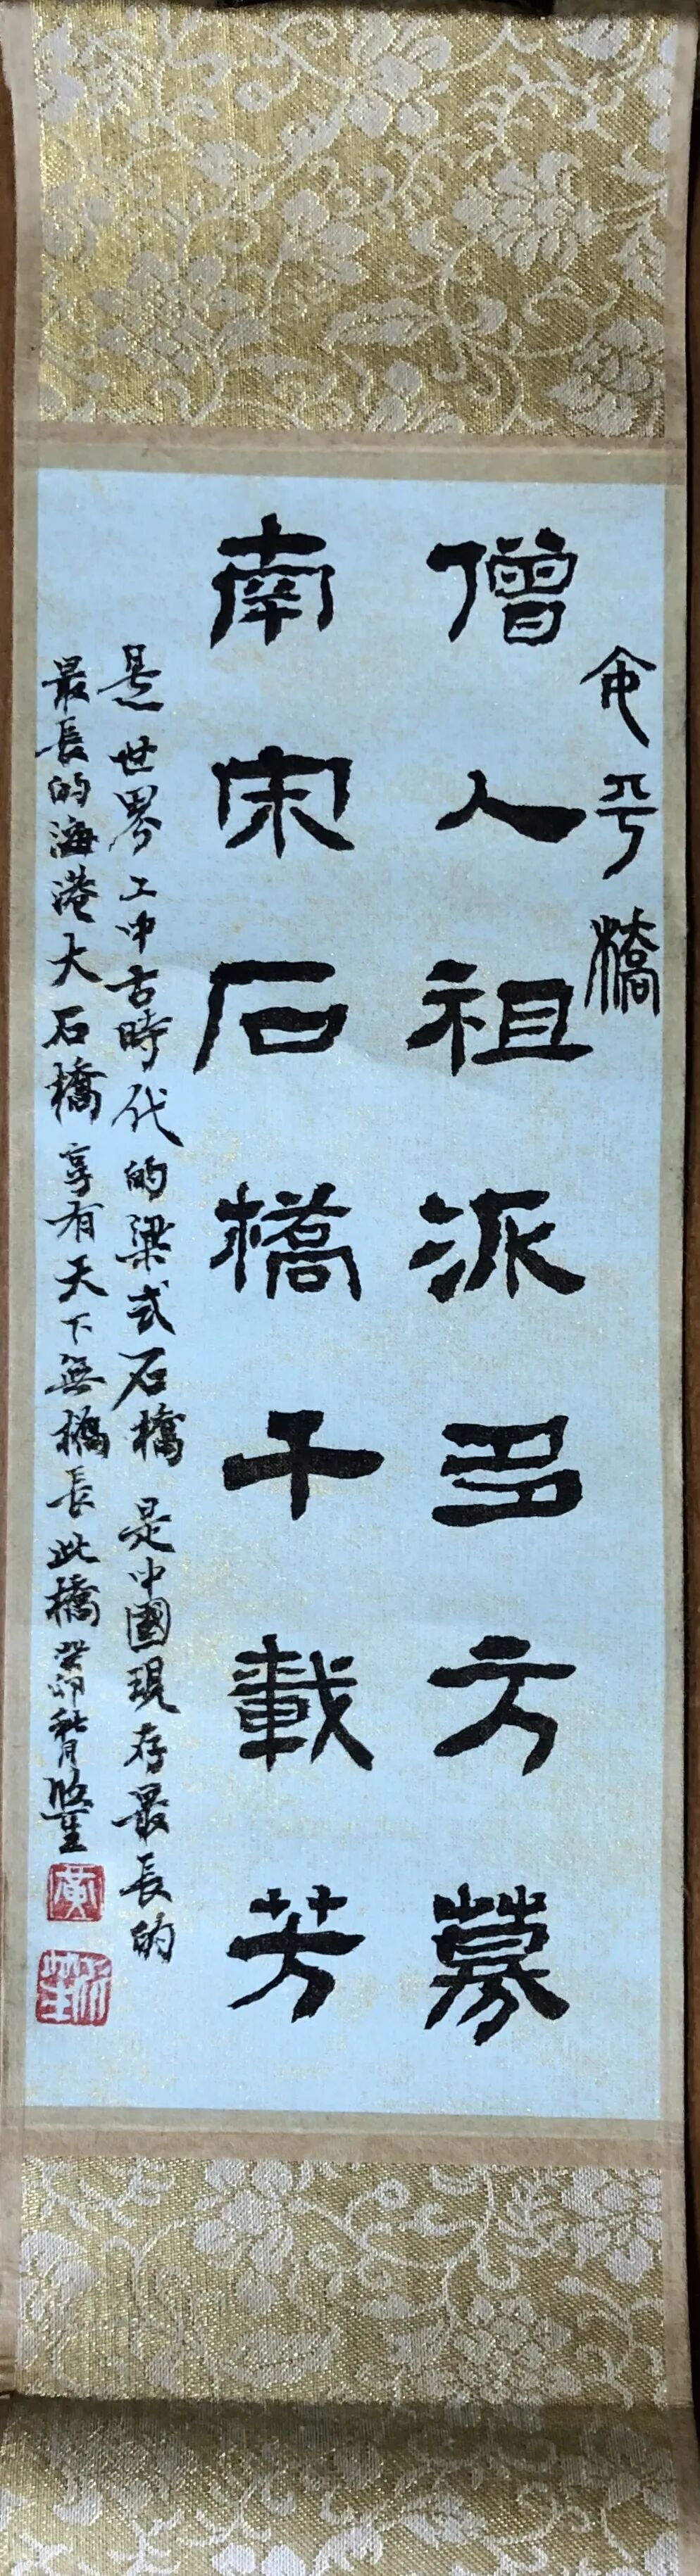 安平橋
僧人祖派多方募
南宋石橋千載芳
是世界上中古時代的梁式石橋 是中國現存最長的
最長的海港大石橋 享有天下無橋長此橋 癸卯秋月
黄